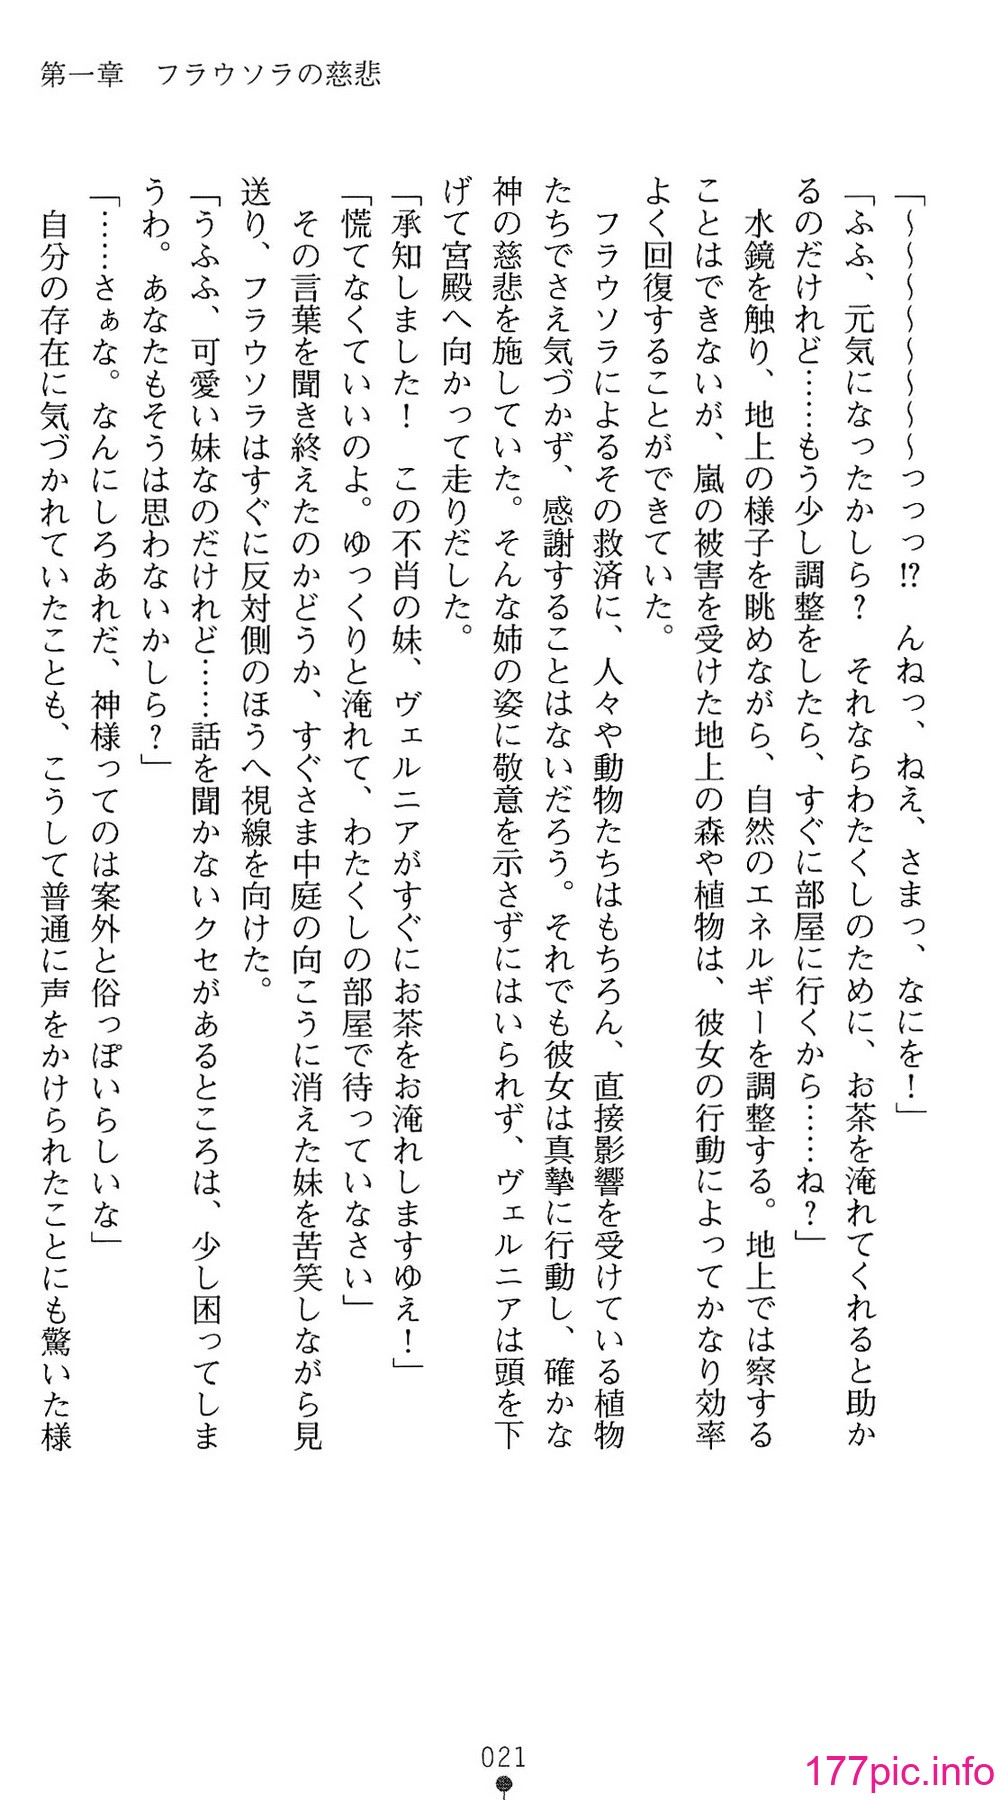 第一章　フラウソラの慈悲
「～～～～～～～～っっっ!?　んねっ、ねえ、さまっ、なにを！」
「ふふ、元気になったかしら？　それならわたくしのために、お茶を淹れてくれると助か
るのだけれど……もう少し調整をしたら、すぐに部屋に行くから……ね？」
　水鏡を触り、地上の様子を眺めながら、自然のエネルギーを調整する。地上では察する
ことはできないが、嵐の被害を受けた地上の森や植物は、彼女の行動によってかなり効率
よく回復することができていた。
　フラウソラによるその救済に、人々や動物たちはもちろん、直接影響を受けている植物
たちでさえ気づかず、感謝することはないだろう。それでも彼女は真摯に行動し、確かな
神の慈悲を施していた。そんな姉の姿に敬意を示さずにはいられず、ヴェルニアは頭を下
げて宮殿へ向かって走りだした。
「承知しました！　この不肖の妹、ヴェルニアがすぐにお茶をお淹れしますゆえ！」
「慌てなくていいのよ。ゆっくりと淹れて、わたくしの部屋で待っていなさい」
　その言葉を聞き終えたのかどうか、すぐさま中庭の向こうに消えた妹を苦笑しながら見
送り、フラウソラはすぐに反対側のほうへ視線を向けた。
「うふふ、可愛い妹なのだけれど……話を聞かないクセがあるところは、少し困ってしま
うわ。あなたもそうは思わないかしら？」
「……さぁな。なんにしろあれだ、神様ってのは案外と俗っぽいらしいな」
　自分の存在に気づかれていたことも、こうして普通に声をかけられたことにも驚いた様
021
177pic.info